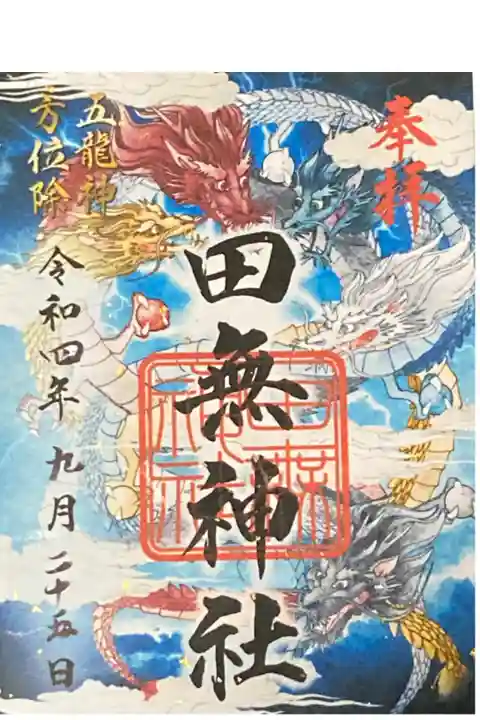 奉拝
田無神社
五龍神
方位除
令和四年九月二十五日
田無
神社